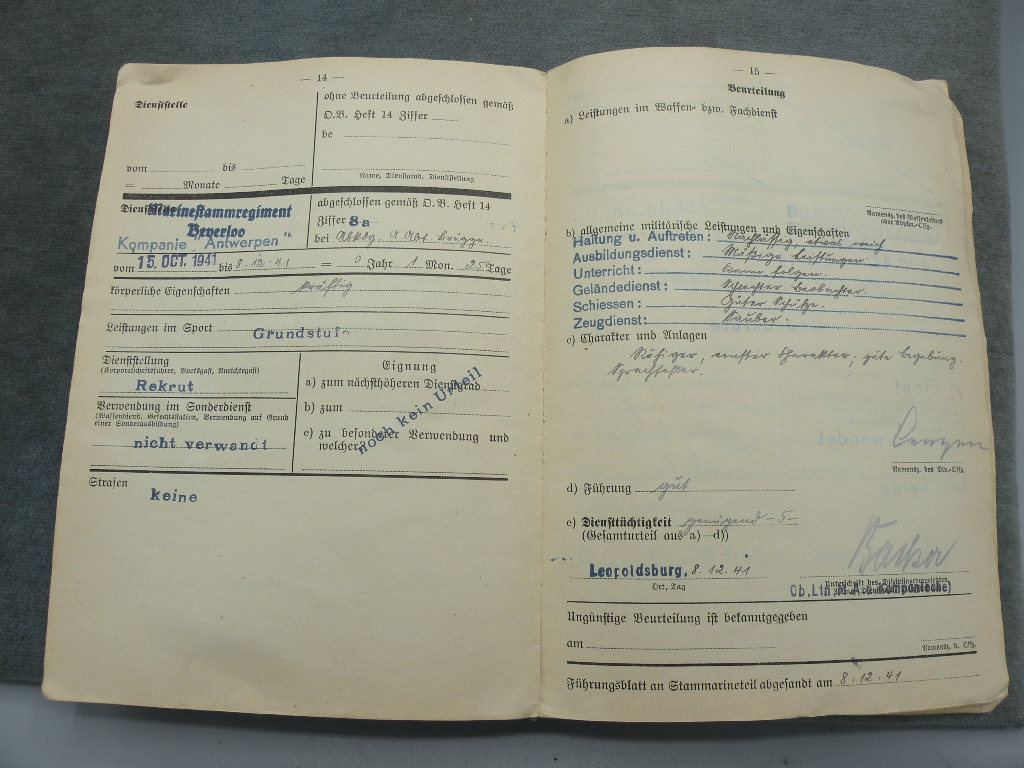 — 14 —
Dienststelle
ohne Beurteilung abgeschlossen gemäß
O.B. Heft 14 Ziffer
be
vom bis
= Monate Tage
Name, Dienstgrad, Dienststellung
Marinestammregiment
Beverloo
Kompanie „Antwerpen"
abgeschlossen gemäß O.B. Heft 14
Ziffer 8a
bei Abkdg. A Abt. Brügge.
vom 15. OKT. 1941 bis 8.12.41 = 0 Jahr 1 Mon. 25 Tage
körperliche Eigenschaften kräftig
Leistungen im Sport Grundstufe
Dienststellung
(Korporalschaftsführer, Bootsgast, Anrichtegast)
Rekrut
Verwendung im Sonderdienst
(Waffendienst, Gefechtsstation, Verwendung auf Grund
einer Sonderausbildung)
nicht verwandt
Eignung
a) zum nächsthöheren Dienstgrad
b) zum
c) zu besonderer Verwendung und
welcher?
noch kein Urteil
Strafen
keine
— 15 —
Beurteilung
a) Leistungen im Waffen- bzw. Fachdienst
Namensz. des Waffenleiters
oder Abschn.-Offz.
b) allgemeine militärische Leistungen und Eigenschaften
Haltung u. Auftreten: Nachlässig etwas weich
Ausbildungsdienst: Mäßige Leistungen.
Unterricht: Kann folgen.
Geländedienst: Schlechter Beobachter.
Schiessen: Guter Schütze.
Zeugdienst: Sauber.
c) Charakter und Anlagen
Ruhiger, ernster Charakter, gute Begabung.
Sprachfehler.
Namensz. des Div.-Offz.
d) Führung gut
e) Diensttüchtigkeit genügend -5-
(Gesamturteil aus a)—d))
Leopoldsburg, 8.12.41
Ort, Tag
Unterschrift des Disziplinarvorgesetzten
Ob.Ltn M.A. u Kompaniechef
Ungünstige Beurteilung ist bekanntgegeben
am
Namensz. d. Offz.
Führungsblatt an Stammarineteil abgesandt am 8.12.41